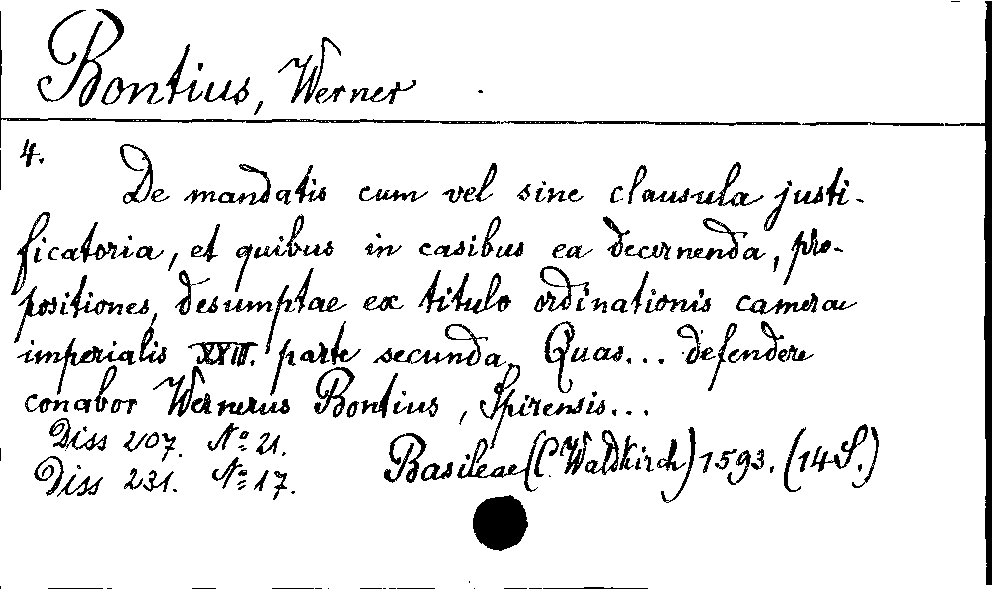 Bontius, Werner
4.
De mandatis cum vel sine clausula justi-
ficatoria, et quibus in casibus ea decernenda, pro-
positiones, desumptae ex titulo ordinationis camerae
imperialis XXIII. parte secunda, Quas... defendere
conabor Wernerus Bontius, Spirensis...
Diss 207. No 21.
Diss 231. No 17.
Basileae (C. Waldkirch) 1593. (14 S.)